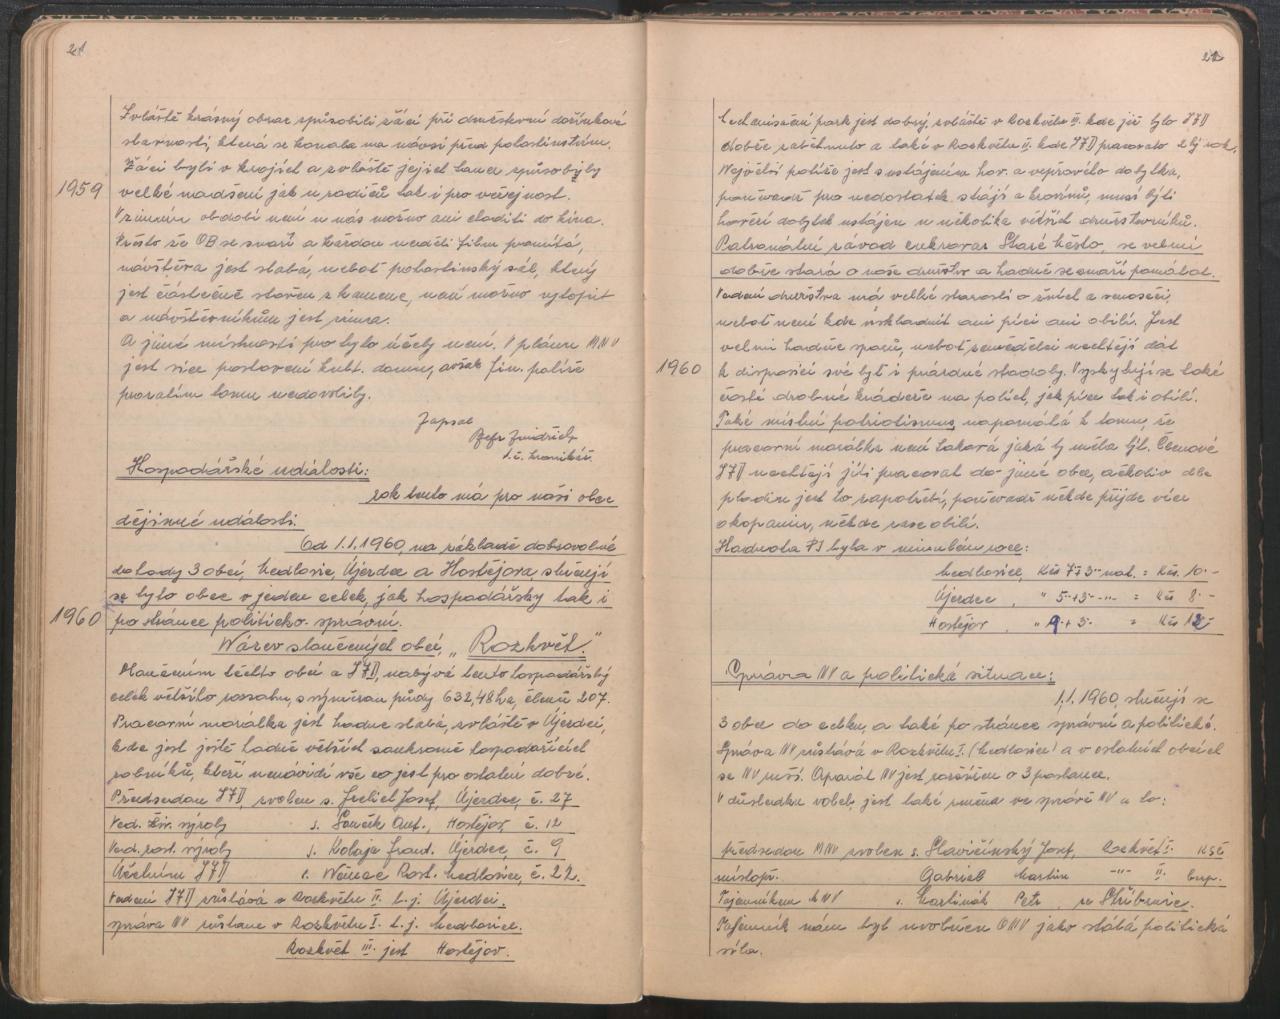 21
Zvláště krásný obraz způsobili žáci při družstevní dožínkové
slavnosti, která se konala na návsi před pohostinstvím.
Žáci byli v krojích a zvláště jejich tance způsobily
1959
velké nadšení jak u rodičů tak i pro veřejnost.
V zimním období není u nás možno ani choditi do kina.
Přesto že OB se snaží a každou neděli film promítá,
návštěva jest slabá, neboť pohostinský sál, který
jest částečně stavěn z kamene, není možno vytopit
a návštěvníkům jest zima.
A jiné místnosti pro tyto účely není. V plánu MNV
jest sice postavení kult. domu, avšak fin. potíže
prozatím tomu nedovolily.
Zapsal
Jindřich
t.č. kronikář.
Hospodářské události:
rok tento má pro naši obec
dějinné události.
Od 1.1.1960, na základě dobrovolné
dohody 3 obcí, Medlovic, Újezdce a Hostějova, slučují
se tyto obce v jeden celek, jak hospodářsky tak i
1960
po stránce politicko-správní.
Název sloučených obcí, „Rozkvět."
Sloučením těchto obcí a JZD, nabývá tento hospodářský
celek většího rozsahu, s výměrou půdy 632,48 ha, členů 207.
Pracovní morálka jest hodně slabá, zvláště v Újezdci,
kde jest ještě hodně větších soukromě hospodařících
rolníků, kteří nenávidí vše co jest pro ostatní dobré.
Předsedou JZD, zvolen s. Josef, Újezdec, č. 27
Ved. živ. výroby s. Ant., Hostějov, č. 12
Ved. rost. výroby s. Kolaja Frant. Újezdec č. 9
Účetním JZD s. Němec Rost. Medlovice, č. 22.
Vedení JZD zůstává v Rozkvětu II. t.j. Újezdci.
správa NV zůstane v Rozkvětu I. t.j. Medlovice.
Rozkvět III. jest Hostějov.
22
Mechanisační park jest dobrý, zvláště v Rozkvětu III. kde již bylo JZD
dobře zaběhnuto a také v Rozkvětu II. kde JZD pracovalo rok.
Největší potíže jest s ustájením hov. a vepřového dobytka,
poněvadž pro nedostatek stájí a kravínů, musí býti
hovězí dobytek ustájen u několika větších družstevníků.
Patronátní závod cukrovar Staré Město, se velmi
dobře stará o naše družstvo a hodně se snaží pomáhat.
Vedení družstva má velké starosti o žních a senoseči,
neboť není kde uskladnit ani píci ani obilí. Jest
velmi hodně sporů, neboť zemědělci nechtějí dát
1960
k disposici své byť i prázdné stodoly. Vyskytují se také
časté drobné krádeže na polích, jak píce tak i obilí.
Také místní patriotismus, napomáhá k tomu, že
pracovní morálka není taková jaká by měla být. Členové
JZD nechtějí jíti pracovat do jiné obce, ačkoliv dle
plodin jest to zapotřebí, poněvadž někde přijde více
okopanin, někde zase obilí.
Hodnota PJ byla v minulém roce:
Medlovice, Kčs 7+3-- nat. = Kčs. 10.-
Újezdec, " 5-+3-- -"- = Kčs 8.-
Hostějov, " 9-+3- = Kčs 12-
Správa NV a politická situace:
1.1.1960, slučují se
3 obce do celku, a také po stránce správní a politické.
Správa NV zůstává v Rozkvětu I. (Medlovice) a v ostatních obcích
se NV ruší. Aparát NV jest rozšířen o 3 poslance.
V důsledku voleb, jest také změna ve správě NV a to:
předsedou MNV zvolen s. Slavičínský Josef, Rozkvět I. KSČ
místopř. Gabriel Martin -"- II. bezp.
Tajemníkem MNV s. Martinák Petr, ze Stříbrnic.
Tajemník nám byl uvolněn ONV jako stálá politická
síla.